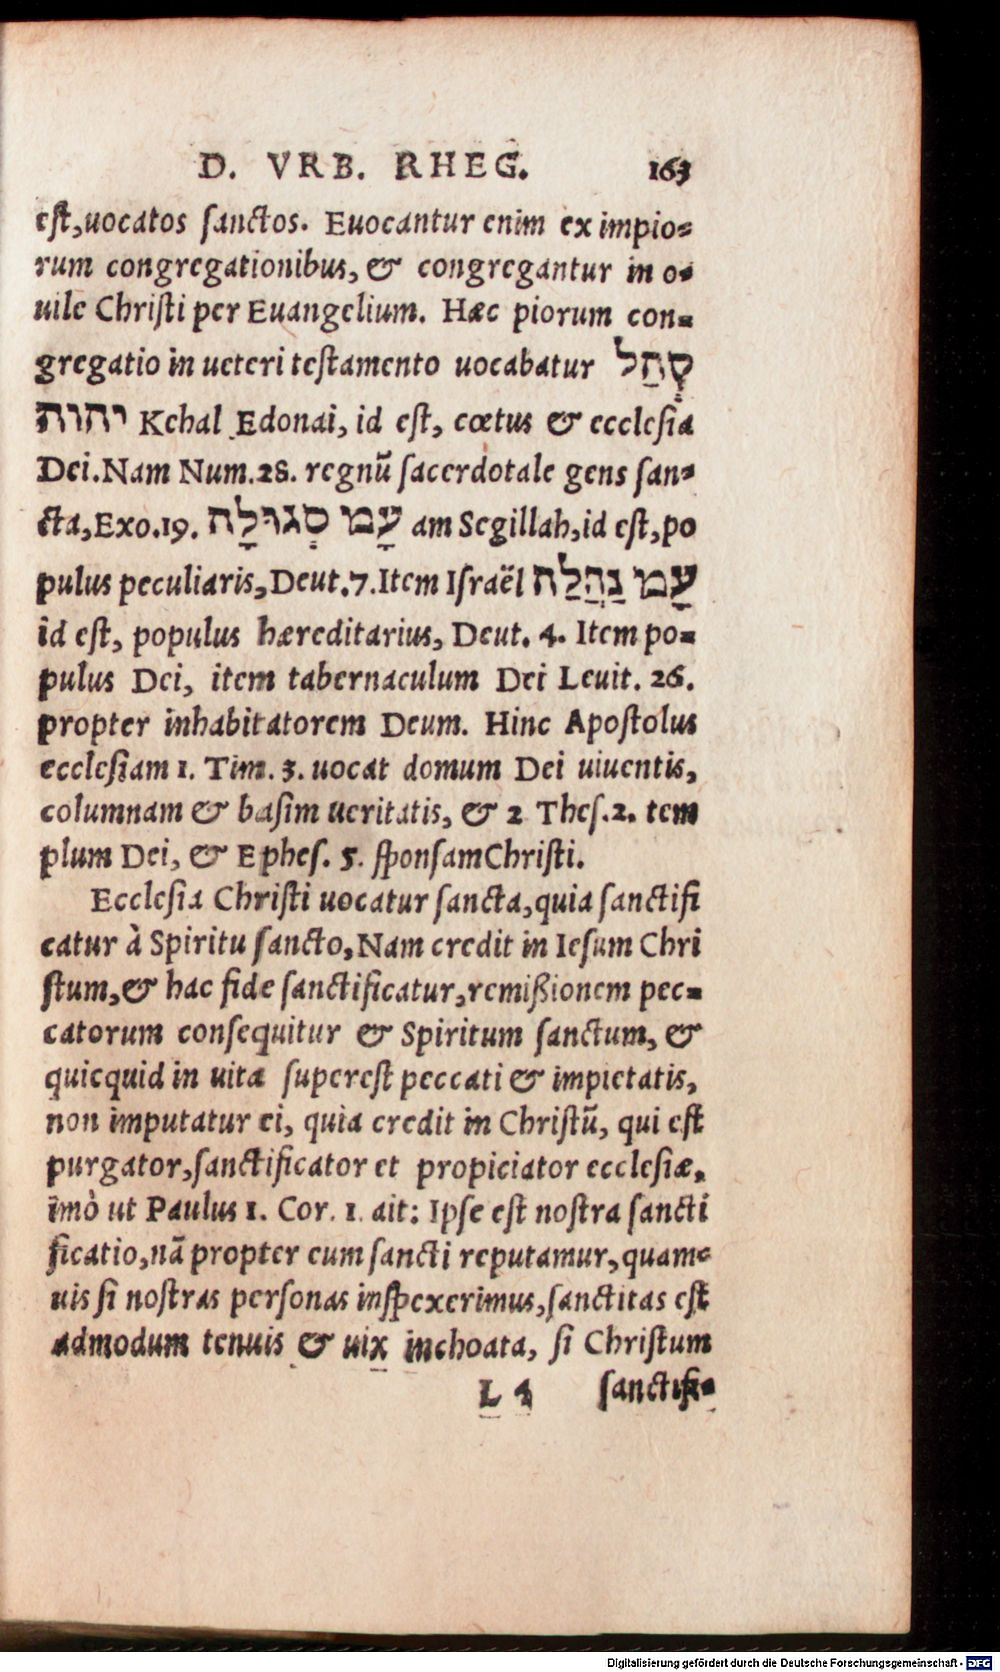 D. VRB. RHEG. 163
est,uocatos sanctos. Euocantur enim ex impio-
rum congregationibus, & congregantur in o-
uile Christi per Euangelium. Hæc piorum con-
gregatio in ueteri testamento uocabatur קְהַל
יהוה Kehal Edonai, id est, cœtus & ecclesia
Dei. Nam Num.28. regnū sacerdotale gens san-
cta,Exo.19. עָמ סְגוּלָה am Segillah,id est,po
pulus peculiaris,Deut.7.Item Israël עָמ נַהֲלַת
id est, populus hæreditarius, Deut. 4. Item po-
pulus Dei, item tabernaculum Dei Leuit. 26.
propter inhabitatorem Deum. Hinc Apostolus
ecclesiam 1. Tim. 3. uocat domum Dei uiuentis,
columnam & basim ueritatis, & 2 Thes.2. tem
plum Dei, & Ephes. 5. sponsam Christi.
Ecclesia Christi uocatur sancta,quia sanctifi
catur à Spiritu sancto,Nam credit in Iesum Chri
stum,& hac fide sanctificatur,remißionem pec-
catorum consequitur & Spiritum sanctum, &
quicquid in uita superest peccati & impietatis,
non imputatur ei, quia credit in Christū, qui est
purgator,sanctificator et propiciator ecclesiæ,
imò ut Paulus 1. Cor. 1. ait: Ipse est nostra sancti
ficatio,nā propter eum sancti reputamur,quam-
uis si nostras personas inspexerimus,sanctitas est
admodum tenuis & uix inchoata, si Christum
L 4 sanctifi-
Digitalisierung gefördert durch die Deutsche Forschungsgemeinschaft - DFG